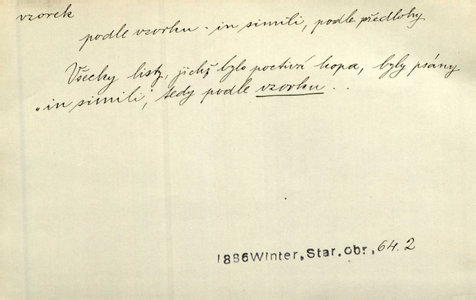 vzorek
podle vzorku - in simili, podle předlohy
Všechy listy, jichž bylo poctivá kopa, byly psány
„in simili“, tedy podle vzorku . .
1886Winter, Star. obr., 64. 2